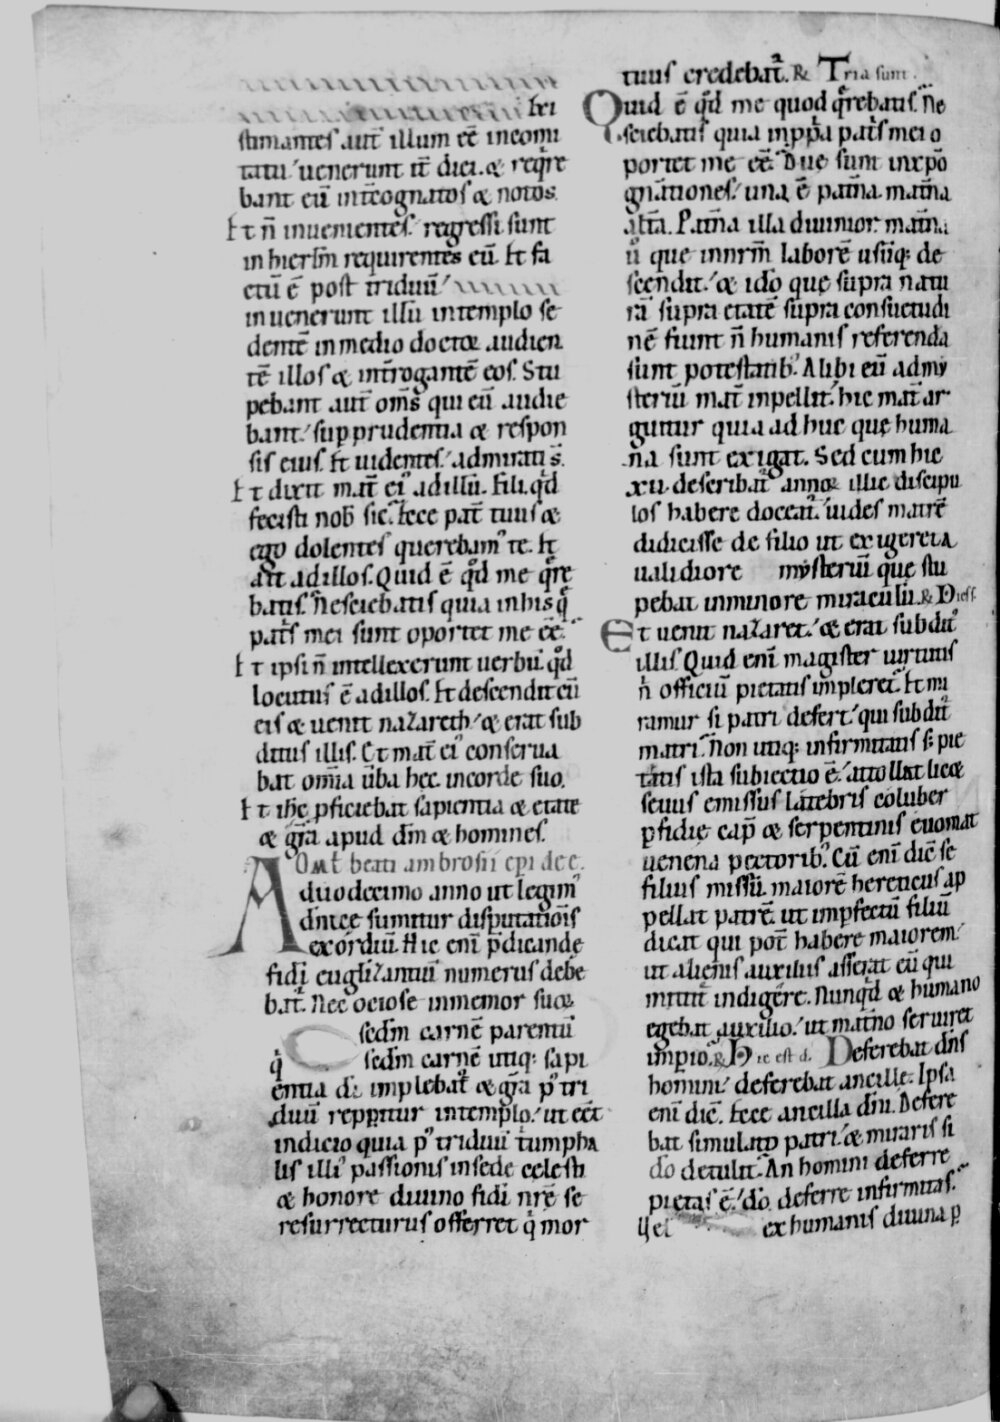 hri
stimantes aut̄ illum eē incomi
tatu' uenerunt it̄ diei. & req̇re
bant eū int̄ cognatos & notos.
Et n̄ inuenientes' regressi sunt
in hierlm̄ requirentes eū. Et fa
ctū ē post triduū'
inuenerunt illū intemplo se
dentē inmedio doctoꝝ audien
tē illos & int̄rogantē eos. Stu
pebant aut̄ om̄s qui eū audie
bant' sup prudentia & respon
sis eius. Et uidentes' admirati s̄.
Et dixit mat̄ ei᾽ ad illū. Fili. q̇d
fecisti nob̄ sic. Ecce pat̄ tuus &
ego dolentes querebam᾽ te. Et
ait ad illos. Quid ē q̇d me q̇re
batis. Nesciebatis quia inhis q̇
pat̄s mei sunt oportet me eē.
Et ipsi n̄ intellexerunt uerbū q̇d
locutus ē ad illos. Et descendit cū
eis & uenit nazareth' & erat sub
ditus illis. Et mat̄ ei᾽ conserua
bat om̄ia ūba hec incorde suo.
Et ihc̄ ꝓficiebat sapientia & etate
& gr̄a apud dm̄ & homines.
AOmt̄ beati ambrosii epi de e.
duodecimo anno ut legim᾽
dn̄ice sumitur disputationis
exordiū. Hic eni p̄dicande
fidi euglizantiū numerus debe
bat̄. Nec ociose inmemor suoꝝ
sedm̄ carnē parentū
q̇ sedm̄ carnē utiq; sapi
entia di implebat̄ & gr̄a p᾽ tri
duū repperitur intemplo' ut eēt
indicio quia p᾽ triduū triumpha
lis illi᾽ passionis insede celesti
& honore diuino fidi nr̄e se
resurrecturus offerret q̇ mor
tuus credebat̄. R Tria sunt.
Quid ē q̇d me quod q̇rebatis. Ne
sciebatis quia inpp̄a pat̄s mei o
portet me eē. Due sunt inxp̄o
gn̄ationes' una ē pat̄na. mat̄na
alt̄a. Pat̄na illa diuinior. mat̄na
ū que innrm̄ laborē usūq; de
scendit' & ido que supra natu
rā supra etatē supra consuetudi
nē fiunt n̄ humanis referenda
sunt potestatib᾽. Alibi eū admy
steriū mat̄ inpellit. hic mat̄ ar
guitur quia ad huc que huma
na sunt exigat. Sed cum hic
xii describat̄ annoꝝ illic discipu
los habere doceat̄' uides matrē
didicisse de filio ut exigeret a
ualidiore mysteriū que stu
pebat inminore miraculū. R Dicss
Et uenit nazaret' & erat subdit᾽
illis. Quid eni magister uirtutis
n̄ officiū pietatis impleret. Et mi
ramur si patri defert' qui subdit̄
matri. non utiq; infirmitatis s; pie
tatis ista subiectio ē' attollat licæ
seuus emissus latebris coluber
ꝑfidie cap̄ & serpentinis euomat
uenena pectorib᾽. Cū eni dic̄ se
filius missū. maiorē hereticus ap
pellat patrē. ut imꝑfectū filiū
dicat qui pot̄ habere maiorem'
ut alienis auxiliis asserat eū qui
mittit̄ indigere. Nunq̇d & humano
egebat auxilio' ut mat̄no seruiret
imperio. R Hic est d. Deferebat dn̄s
homini' deferebat ancille. Ipsa
eni dic̄. Ecce ancilla dn̄i. Defere
bat simulato patri' & miraris si
do detulit. An homini deferre
pietas ē' do deferre infirmitas.
Uel ex humanis diuina ꝑ